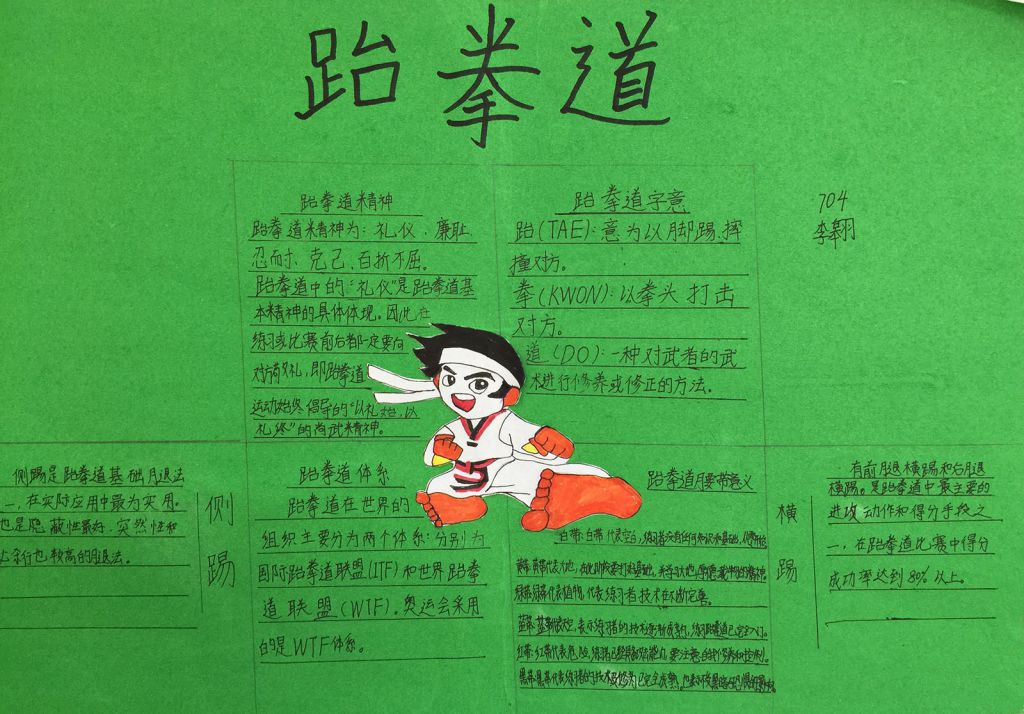 跆拳道
跆拳道精神
跆拳道精神为：礼仪、廉耻、
忍耐、克己、百折不屈。
跆拳道中的“礼仪”是跆拳道基
本精神的具体体现。因此在
练习或比赛前后都一定要向
对方敬礼，即跆拳道
运动始终倡导的“以礼始，以
礼终”的尚武精神。
跆拳道字意
跆(TAE)：意为以脚踢、摔
撞对方。
拳(KWON)：以拳头打击
对方。
道(DO)：一种对武者的武
术进行修养或修正的方法。
704
李翱
侧踢
侧踢是跆拳道基础腿法
一，在实际应用中最为实用。
也是隐蔽性最好，突然性和
率也较高的腿法。
跆拳道体系
跆拳道在世界的
组织主要分为两个体系：分别为
国际跆拳道联盟(ITF)和世界跆拳
道联盟(WTF)。奥运会采用
的是WTF体系。
跆拳道腰带意义
白带：白带代表空白，练习者没有任何知识和基础，
黄带：黄带代表大地，
绿带：绿带代表植物，代表练习者技术在不断完善。
蓝带：蓝带代表天空，表示练习者的技术逐渐成熟，
红带：红带代表危险，练习者已经具备
黑带：黑带代表练习者的技术
横踢
有前腿横踢和后腿
横踢。是跆拳道中最主要的
进攻动作和得分手段之
一，在跆拳道比赛中得分
成功率达到80%以上。